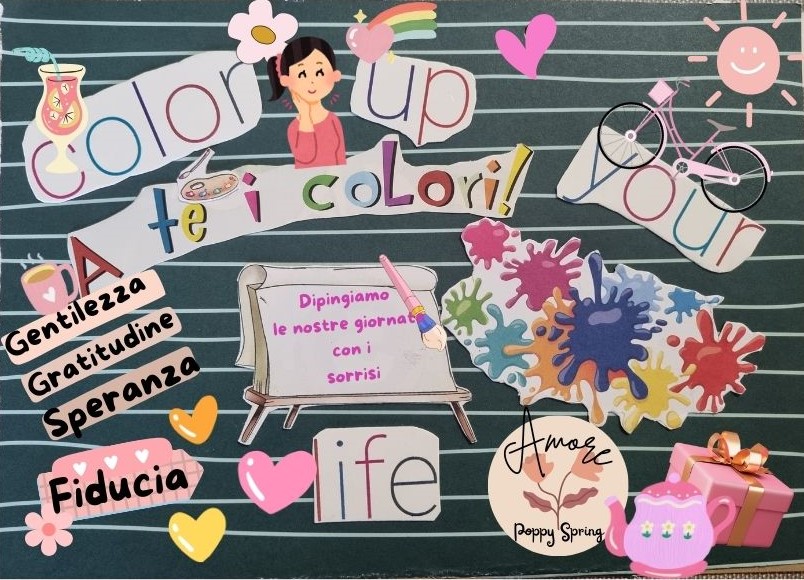 color up
your
A te i coLori!
Gentilezza
Gratitudine
Speranza
Dipingiamo
le nostre giornate
con i
sorrisi
Fiducia
life
Amore
Poppy Spring